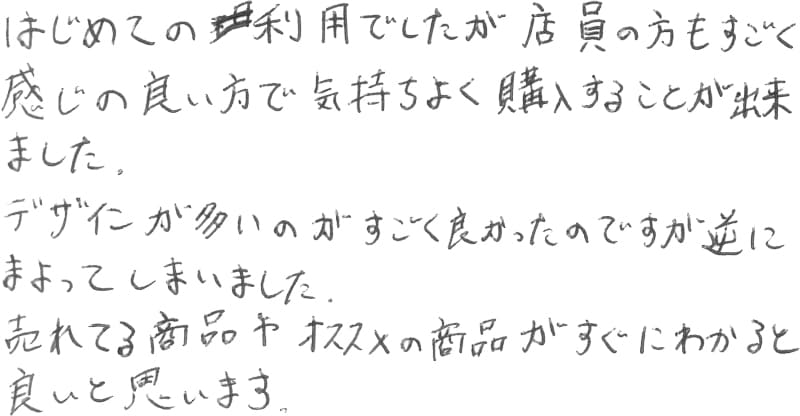 はじめての利用でしたが店員の方もすごく
感じの良い方で気持ちよく購入することが出来
ました。
デザインが多いのがすごく良かったのですが逆に
まよってしまいました.
売れてる商品やオススメの商品がすぐにわかると
良いと思います。